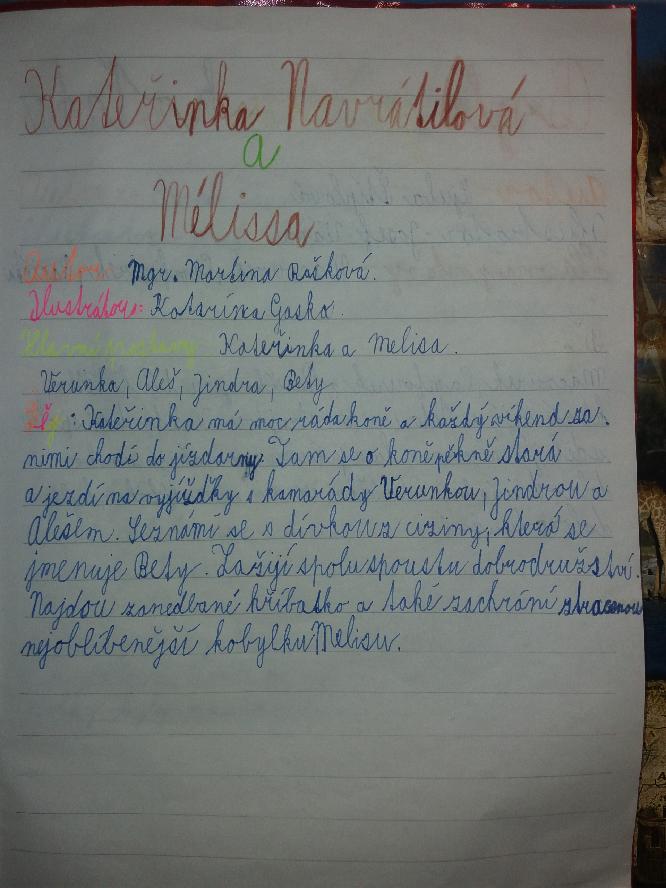 Kateřinka Navrátilová
a
Mélissa
Autor: Mgr. Martina Rašková.
Ilustrátor: Katarína Gasko.
Hlavní postavy Kateřinka a Melisa.
Verunka, Aleš, Jindra, Bety
Děj: Kateřinka má moc ráda koně a každý víkend za
nimi chodí do jízdarny. Tam se o koně pěkně stará
a jezdí na vyjížďky s kamarády Verunkou, Jindrou a
Alešem. Seznámí se s dívkou z ciziny, která se
jmenuje Bety. Zažijí spolu spoustu dobrodružství.
Najdou zanedbané hříbatko a také zachrání ztracenou
nejoblíbenější kobylku Melisu.